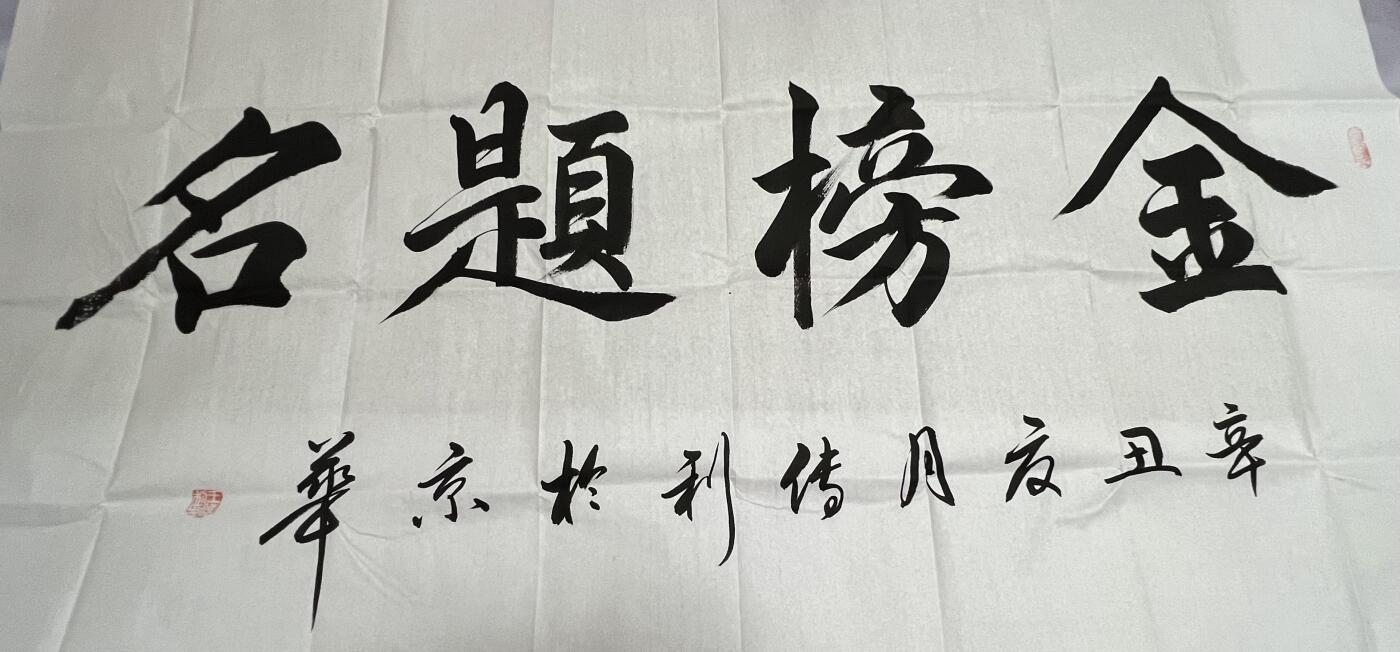 金榜題名
辛丑夏月傳利於京華